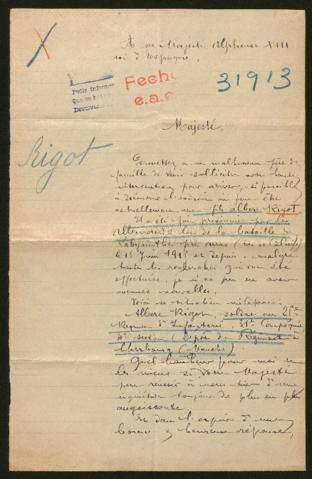 A sa Majesté Alphonse XIII
roi d'Espagne,
31913
Fecha
e.a.
Rigot
Majesté,
Permettez à un malheureux père de
famille de venir solliciter votre haute
intervention pour arriver, si possible
à découvrir
actuellement son fils Albert Rigot
Il a été fait prisonnier par les
Allemands lors de la bataille de
Labyrinthe près Arras
le 16 Juin 1915 et depuis, malgré
toutes les recherches que j'ai
effectuées, je n'ai pu en avoir
aucunes nouvelles.
Voici sa situation militaire:
Albert Rigot, soldat au
Régiment d'Infanterie, Compagnie
section (Dépôt du Régiment à
Cherbourg (Manche)
Quel bonheur pour moi et
les miens si votre Majesté
peut réussir à mettre
inquiétude toujours de plus en plus
angoissante.
Et dans l'espoir d'une
bonne & heureuse réponse,